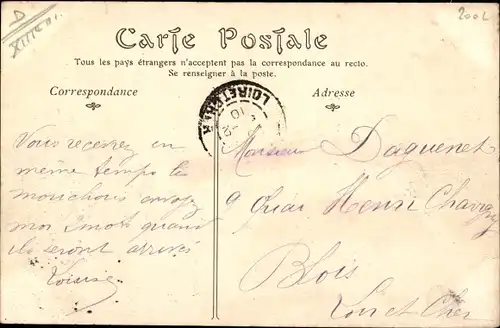 D
XIIIe
2002
Carte Postale
Tous les pays étrangers n'acceptent pas la correspondance au recto.
Se renseigner à la poste.
Correspondance
Adresse
LOIR ET CHER
10
Vous recevrez en
même temps le
mouchoir envoyez
moi 2 mots quand
ils seront arrivés
Louise
Monsieur Daguenet
9 Quai Henri Chavigny
Blois
Loir et Cher